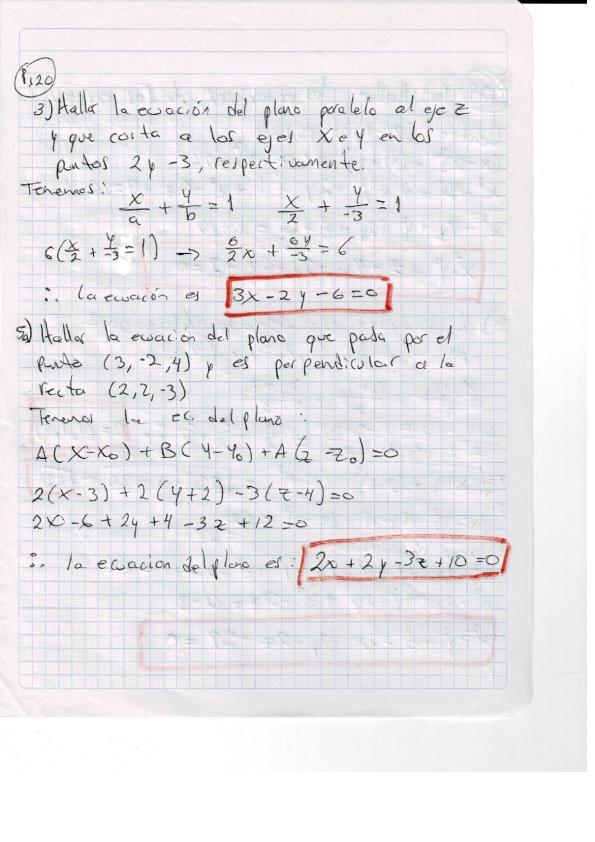 P.20
3) Hallar la ecuación del plano paralelo al eje z
y que corta a los ejes X e Y en los
puntos 2 y -3, respectivamente.
Tenemos:
x/a + y/b = 1    x/2 + y/-3 = 1
6(x/2 + y/-3 = 1) → 6/2 x + 6y/-3 = 6
∴ la ecuación es 3x - 2y - 6 = 0
5a) Hallar la ecuación del plano que pasa por el
punto (3, -2, 4) y es perpendicular a la
recta (2, 2, -3)
Tenemos la ec. del plano:
A(X-X₀) + B(Y-Y₀) + A(z-z₀) = 0
2(x-3) + 2(y+2) - 3(z-4) = 0
2x - 6 + 2y + 4 - 3z + 12 = 0
∴ la ecuacion del plano es: 2x + 2y - 3z + 10 = 0